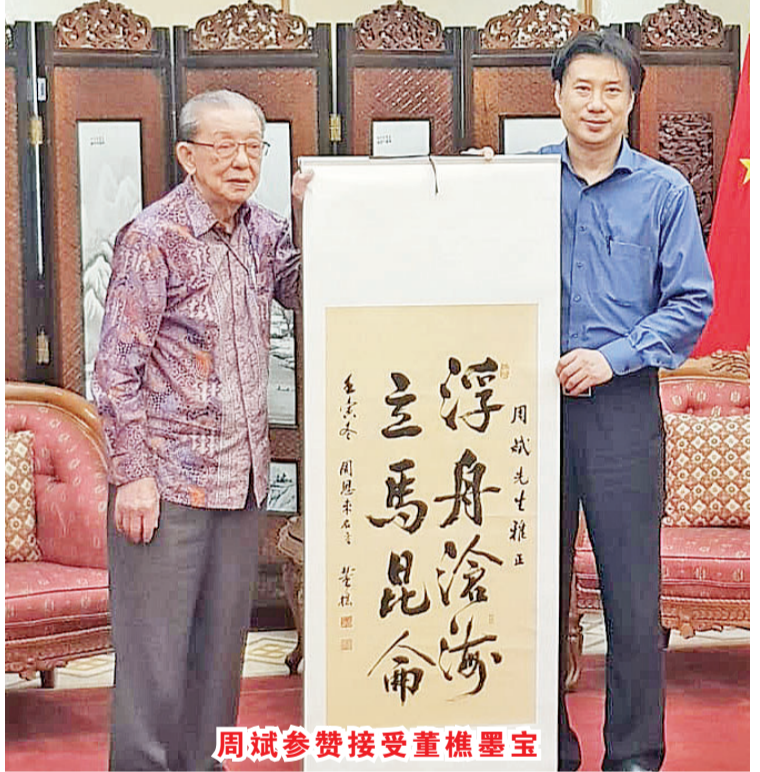 周斌先生雅正
浮舟滄海
立馬昆侖
壬寅冬 周恩来名言 董樵
周斌参赞接受董樵墨宝